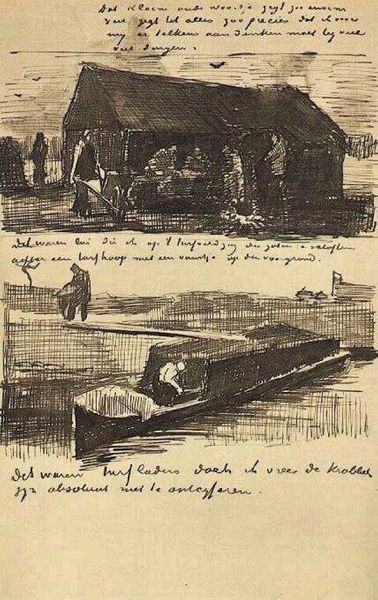 Dat kleine oude woordje zegt zoo enorm
veel, zegt het alles zoo precies dat ik voor
my er telkens aan denken moet by veel
veel dingen.
Dat waren lui die ik op 't turfveld zag die zaten te schaften
achter een turfhoop met een vuurtje op den voorgrond.
Dit waren turfladers doch ik vrees de krabbels
zyn absoluut niet te ontcyfferen.